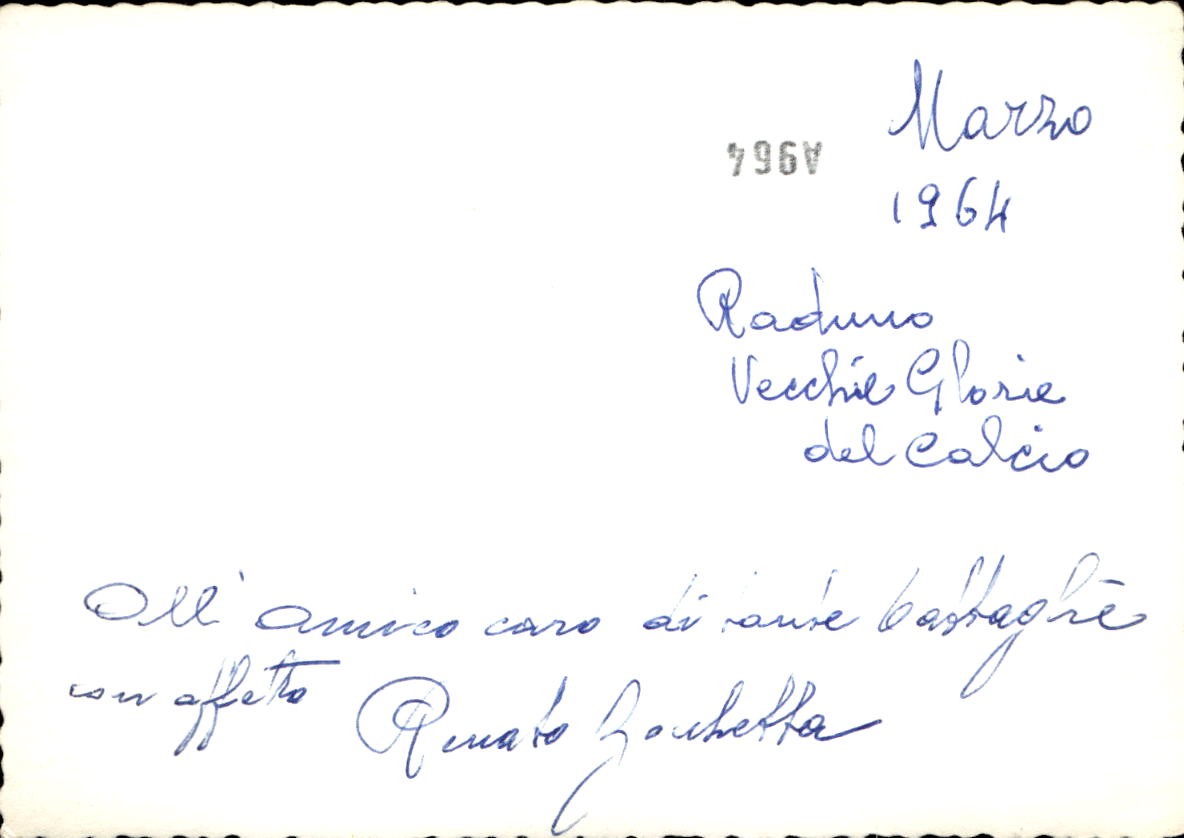 Marzo
A964
1964
Raduno
Vecchie Glorie
del Calcio
All'amico caro di tante battaglie
con affetto Renato